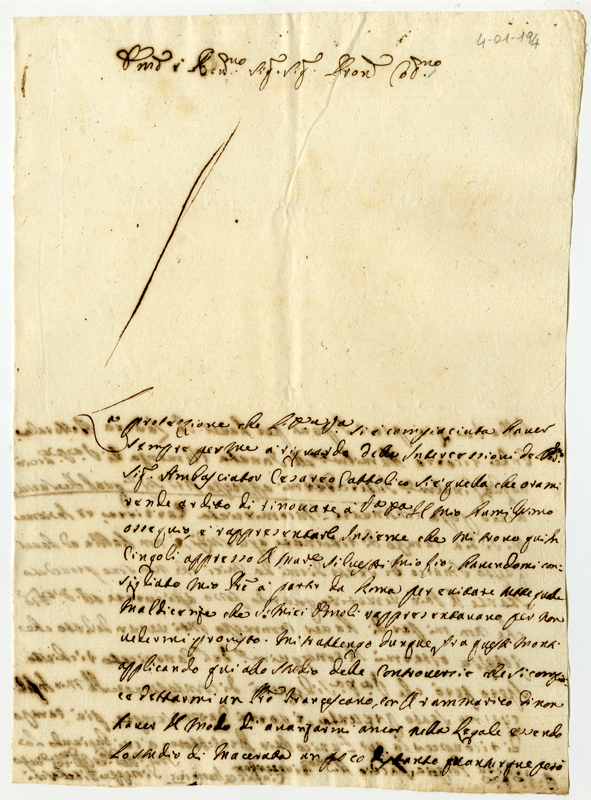 4-01-194
Em̃o e Reṽmo Sig.r Sig.r Pron̄ Col.mo
La protezzione che si è compiaciuta haver
sempre per me a riguardo delle Intercessioni del
Sig.r Ambasciator Cesareo Cattolico si è quella che ora mi
rende ardito di rinovare a il mio humiliss.mo
ossequio, e rappresentarle Insieme che mi trovo quì in
Cingoli appresso il Mar.e Silvestri mio zio, havendomi con-
sigliato mio P.re a partir da Roma per evitare tutte quelle
maldicenze che i miei Emoli rappresentavano per non
vedermi provisto. Mi trattengo dunque, fra questi monti
applicando quì allo studio delle Controversie che si compia-
ce dettarmi un P.re Francescano, con il rammarico di non
haver il modo di avanzarmi ancor nella legale essendo
lo studio di Macerata un poco distante quantunque però